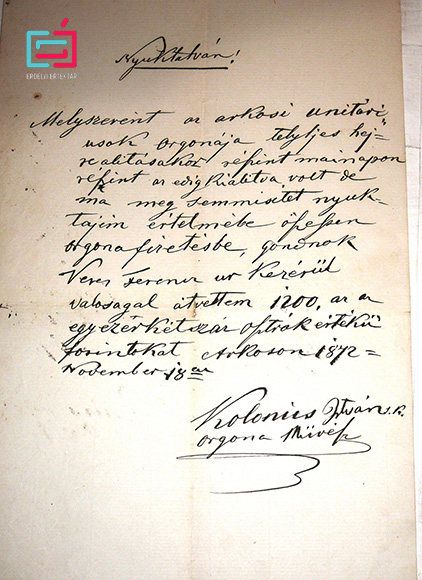 ERDÉLYI ÉRTÉKTÁR
Nyuktatván!
Melyszerent az arkosi unitari-
usok orgonája telyljes hej-
realitásakoz részint mainapon
részint az edig kiálitva volt de
ma meg semmisitet nyuk-
tájim értelmébe öpessen
orgona fizetésbe, gondnok
Veres Ferencz ur kezérül
valoságal átvettem 1200, az az
egyezérkétszár osträk értékü
forintokat Arkoson 1872=
November 18án
Kolonics István s.k.
orgona Müvész